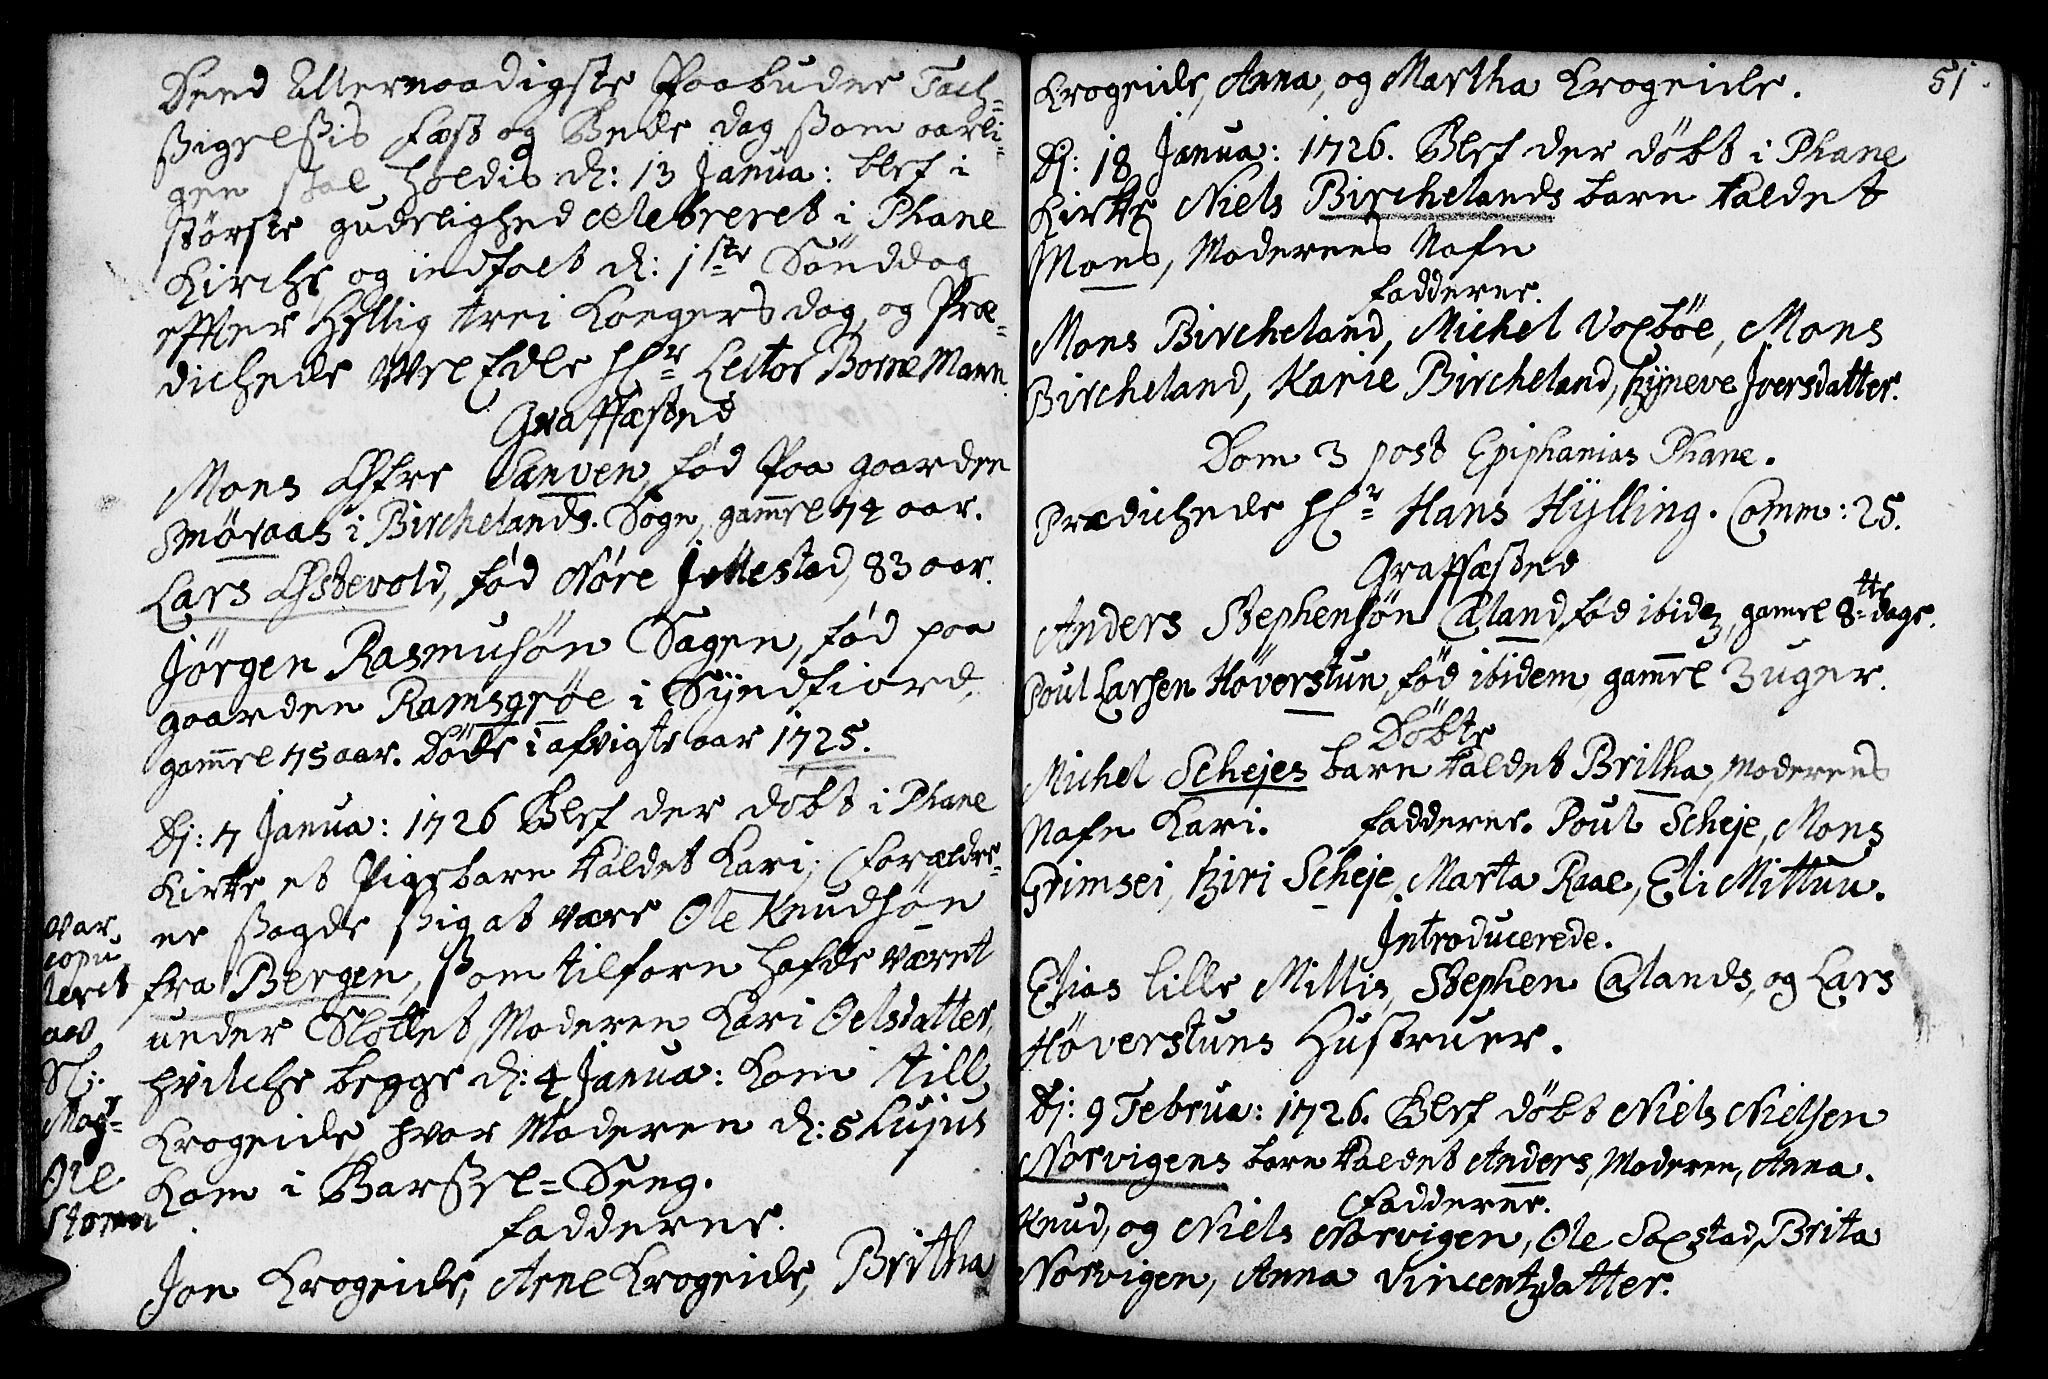 Deend Allernaadigste Paabudne Tach=
sigelsis fæst og Bede dag som aarli=
gen skal holdis d: 13 Janua: blef i
største gudelighed celebreret i Phane
Kirche og indfalt d: 1ste Sønddag
effter Hellig trei Kongers dag, og Præ=
dichede Wel Edle Hr Lector BorneMann
Graffæsted
Mons Øfre Sanven, fød Paa gaarden
Smøraas i Birchelands Sogn, gammel 74 aar.
Lars Østevold, fød Nøre Jettestad, 83 aar.
Jørgen Rasmusøn Hagen, fød paa
gaarden Ramsgrøe i Syndfiord,
gammel 75 aar. Døde i afvigte aar 1725.
Dj: 7 Janua: 1726 Blef der døbt i Phane
Kirke et Pigebarn kaldet Kari, Forældre=
ne sagde sig at være Ole Knudsøn
fra Bergen, som tilforn hafde været
under Slottet, Moderen Kari Oelsdatter,
hvilche begge d: 4 Janua: kom till
Krogeide, hvor Moderen d: 5 hujus
kom i Barsel=Seng.
fadderne.
Jon Krogeide, Arne Krogeide, Britha
var
copu
leret
av
Sl:
Magr=
Ole
Storm
51
Krogeide, Anna, og Martha Krogeide.
Dj: 18 Janua: 1726. Blef der døbt i Phane
Kirke Niels Birchelands barn kaldet
Mons, Moderens Nafn
fadderne.
Mons Bircheland, Michel Voxbøe, Mons
Bircheland, Karie Bircheland, Zyneve Jversdatter.
Dom 3 post Epiphanias Phane.
Prædichede Hr Hans Hylling. Comm: 25.
Graffæsted
Anders Stephensøn Øland, fød ibidem, gamel 8tte dage.
Poul Larsen Høverstun, fød ibidem gammel 3 uger.
Døbte
Michel Schejes barn kaldet Britha, Moderens
Nafn Kari. fadderne. Poul Scheje, Mons
Grimsei, Ziri Scheje, Marta Raae, Eli Mittun.
Introducerede.
Elias lille Millis, Stephen Ølands, og Lars
Høverstuns Hustruer.
Dj: 9 Februa: 1726. Blef døbt Niels Nielsen
Norvigens barn kaldet Anders, Moderen, Anna.
Fadderne.
Knud, og Niels Norvigen, Ole Saxstad, Brita
Norvigen, Anna Vincentzdatter.